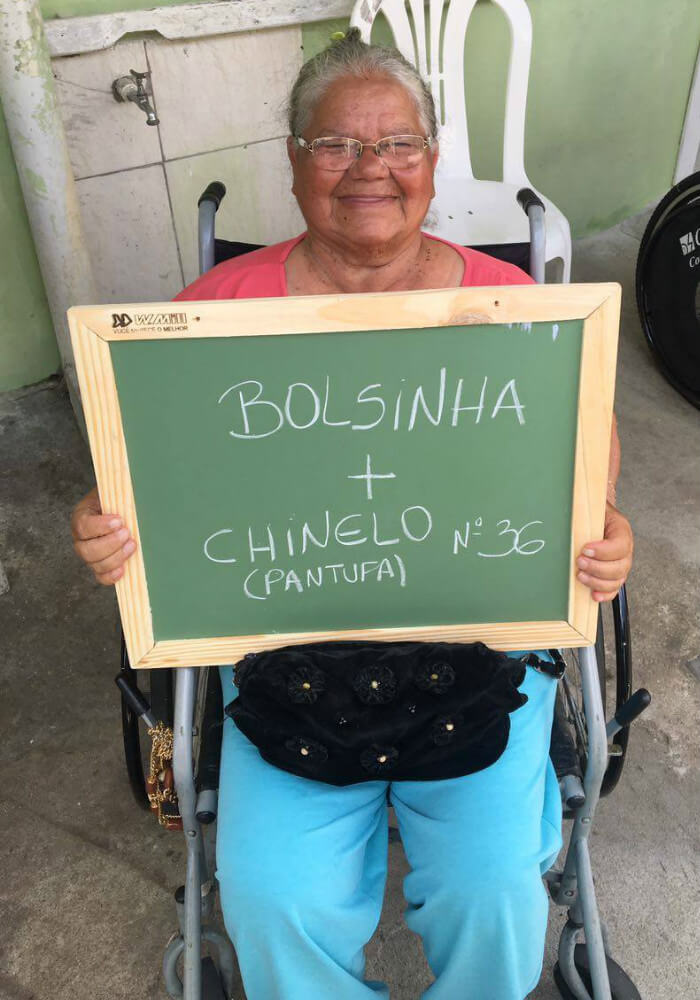 WMill
VOCÊ MERECE O MELHOR
BOLSINHA
+
CHINELO Nº 36
(PANTUFA)